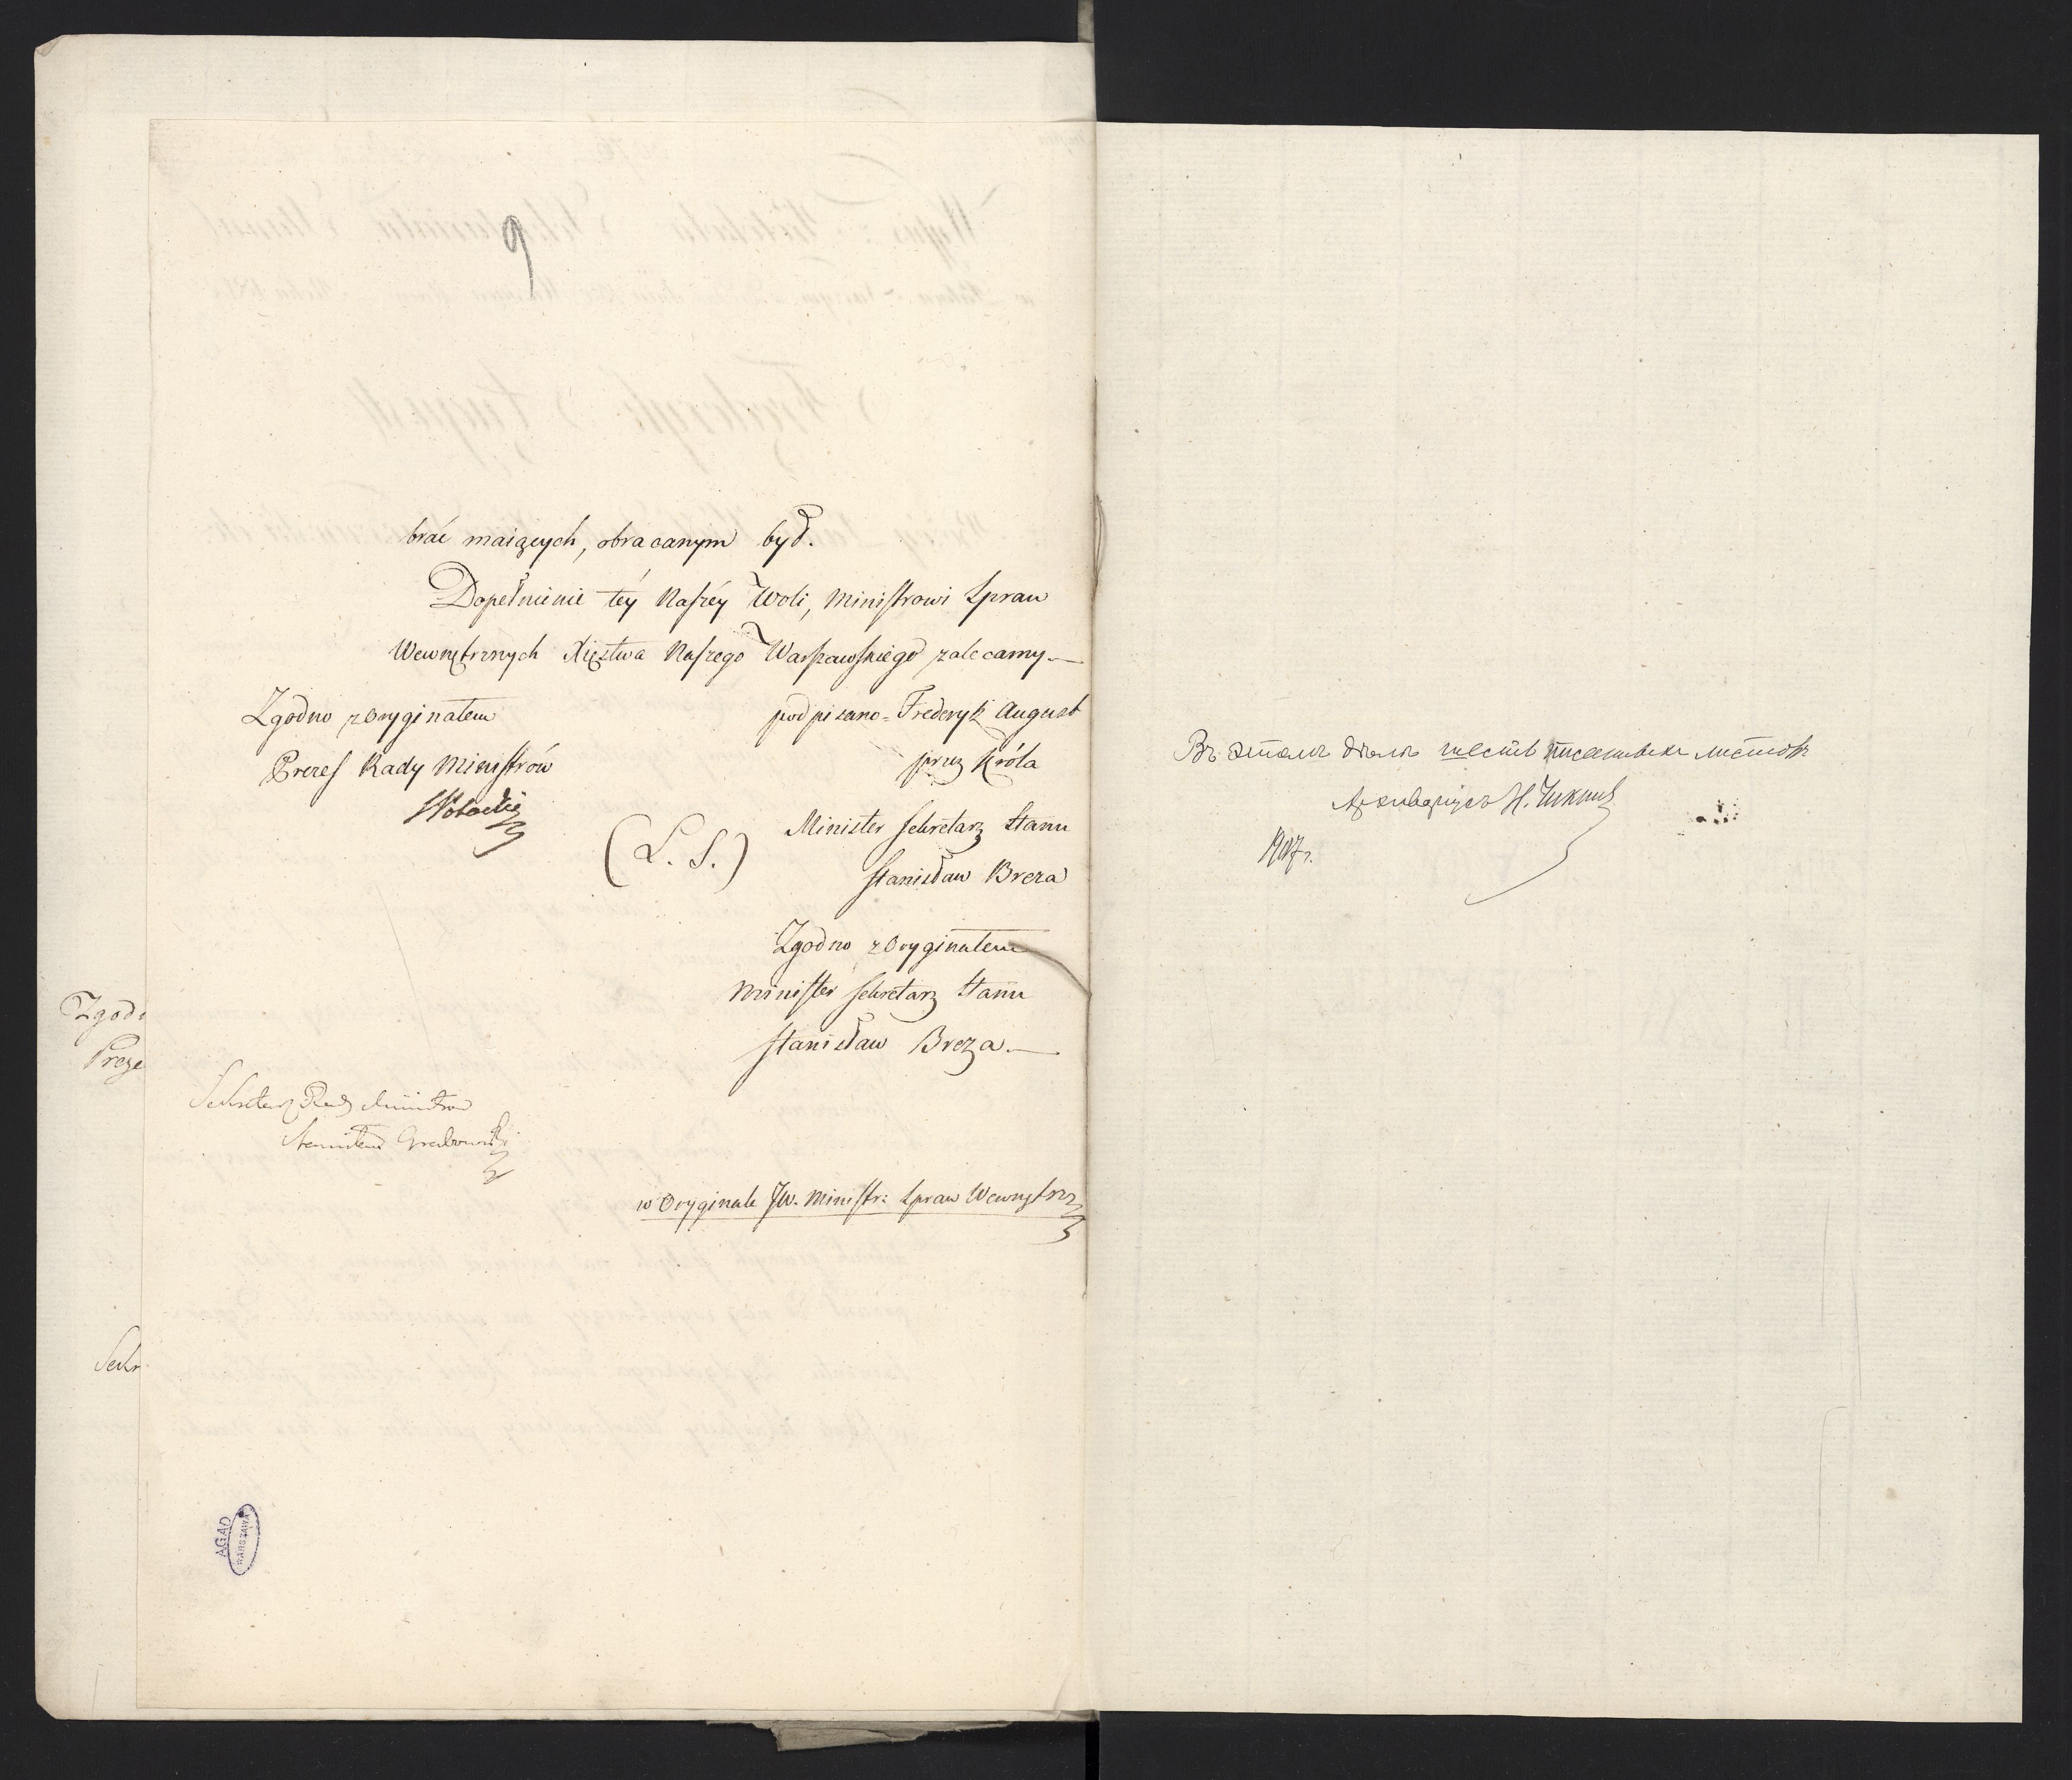 9
brać maiących, obracanym był.
Dopełnienie téy Naszéy Woli, Ministrowi Spraw
Wewnętrznych Xięztwa Naszego Warszawskiego zalecamy.—
Zgodno z Oryginałem
podpisano = Frederyk August
Prezes Rady Ministrów
przez Króla
SPotocki
(L. S.)
Minister Sekretarz Stanu
Stanisław Breza
Zgodno z Oryginałem
Minister Sekretarz Stanu
Stanisław Breza.—
Zgod
Preze
Sekretarz Rady Ministrów
Stanisław Grabowski
w Oryginale JW. Ministr: Spraw Wewnętrz
Sekr
AGAD
WARSZAWA
Въ этомъ дѣлѣ шесть писанныхъ листовъ
Архиваріусъ Н.
1907г.